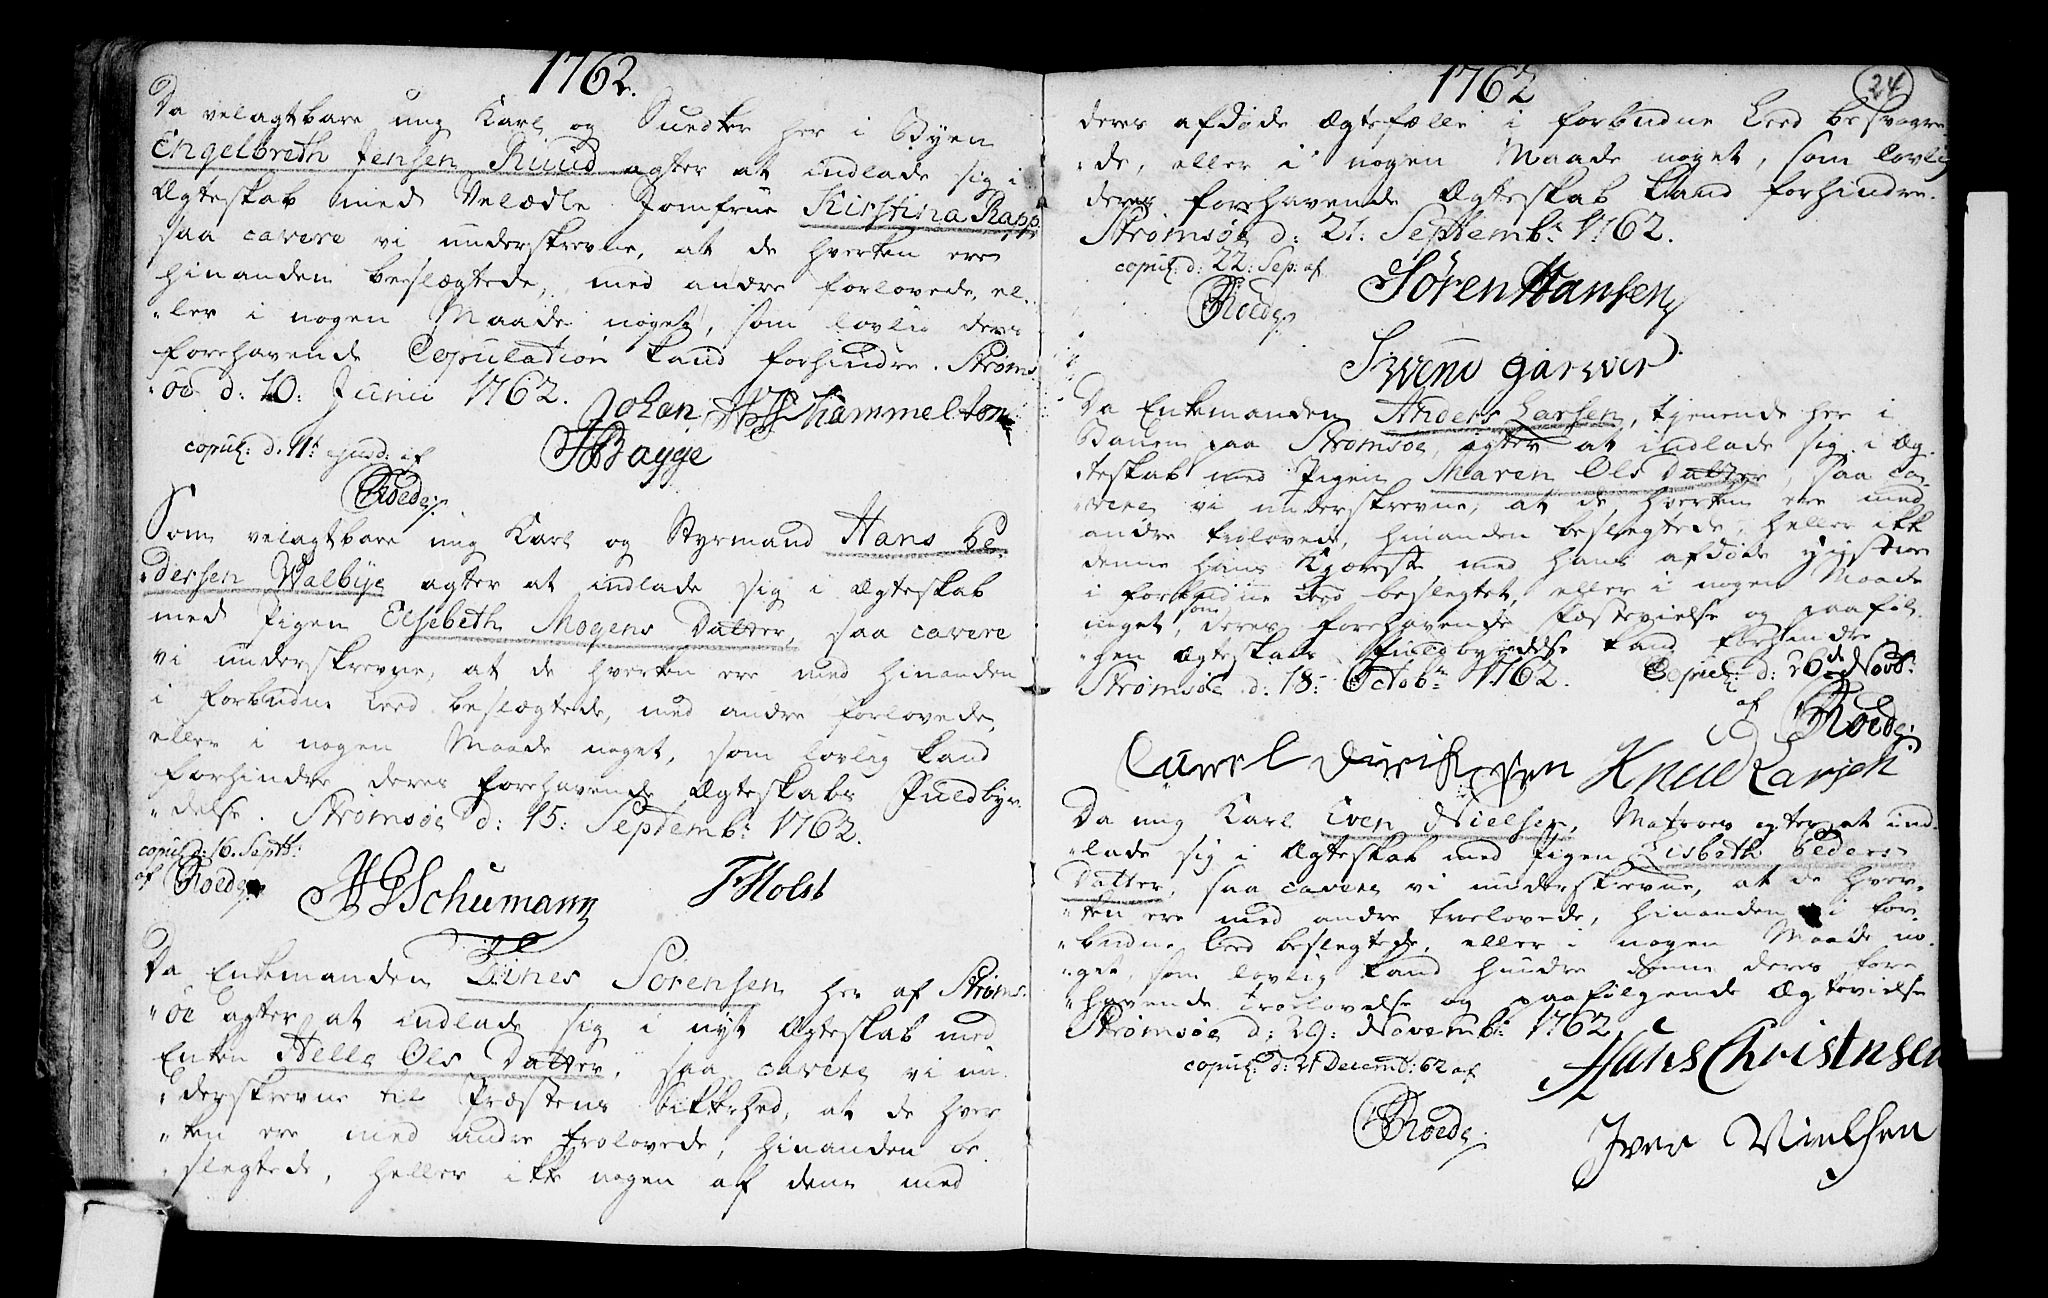 1762.
Da velagtbare ung Karl og Suedker her i Byen
Engelbreth Jensen Ruud agter at indlade sig i
Ægteskab med Velædle Jomfrue Kirstina Rapp
saa cavere vi underskrevne, at de hverken ere
hinanden beslægtede, med andre forlovede, el-
"ler i nogen Maade noget, som lovlig deres
forehavende Copulation kand forhindre. Strøms-
"öe d: 10: Junii 1762.
Johan Schammelton
copul: d. 11t ejusd: af
HBagge
Roede
Som velagtbare ung Karl og Styrmand Hans Pe-
"dersen Walbye agter at indlade sig i Ægteskab
med Pigen Elsebeth Mogens Datter, saa cavere
vi underskrevne, at de hverken ere med hinanden
i forbudne Leed beslægtede, med andre forlovede,
eller i nogen Maade noget, som lovlig kand
forhindre deres forehavende Ægteskabs Fuldbyr-
"delse. Strømsöe d: 15: Septembr: 1762.
copul: d: 16. Septb:
af Roede
Schumann THolst
Da Enkemanden Tines Sörensen her af Strøms-
"öe agter at indlade sig i nyt Ægteskab med
Enken Helle Ols Datter, saa cavere vi un-
"derskrevne til Præstens Sikkerhed, at de hver-
"ken ere med andre trolovede, hinanden be-
"slegtede, heller ikke nogen af dem med
1762
24
deres afdöde Ægtefælle i forbudne Leed besvogre-
"de, eller i nogen Maade noget, som lovlig
deres forehavende Ægteskab kand forhindre.
Strømsöe d: 21: Septembr: 1762.
copul: d: 22: Sep: af
Sören Hansen
Roede
Swend garver
Da Enkemanden Anders Larsen, tjenende her i
Bauen paa Strømsöe, agter at indlade sig i Æg-
"teskab med Pigen Maren Ols Datter, saa ca-
"vere vi underskrevne, at de hverken ere med
andre trolovede, hinanden beslegtede, heller ikke
denne hans Kjæreste med hans afdöde Hustrue
i forbudne Leed beslegtet, eller i nogen Maade
noget, som deres forehavende Fæstevielse og paaföl-
"gen Ægteskabs Fuldbyrdelse kand forhindre.
Strømsöe d: 18: Octobr: 1762. Copul: d: 26de Novb:
af Roede
Carel Dirichsen Knud Larsen
Da ung Karl Even Nielsen, Matroes agter at ind-
"lade sig i Ægteskab med Pigen Lisbeth Peders
Datter, saa cavere vi underskrevne, at de hver-
"ken ere med andre trolovede, hinanden i for-
"budne Leed beslegtede, eller i nogen Maade no-
"get, som lovlig kand hindre denne deres fore-
"havende trolovelse og paafölgende Ægtevielse
Strømsöe d: 29: Novembr: 1762
copul: d: 21 Decemb: 62 af
Hans Christnsen
Roede
Iver Nielsen